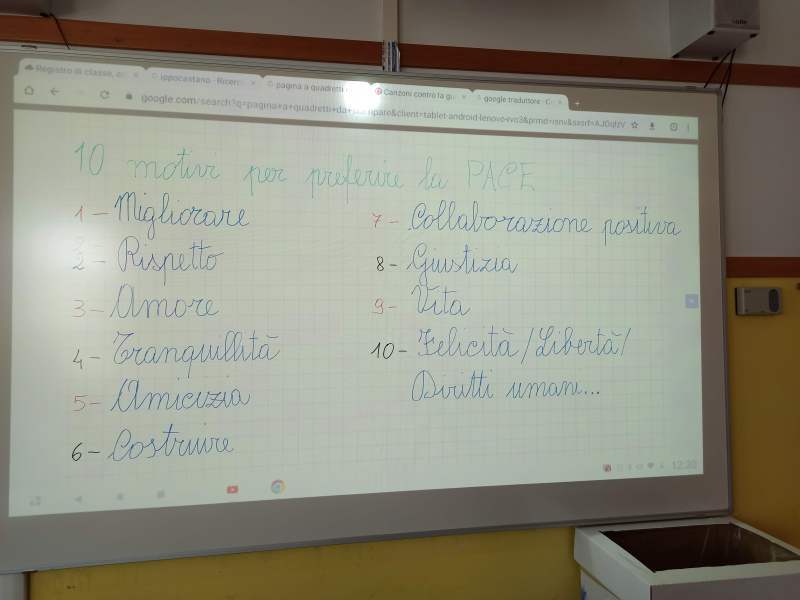 Registro di classe,
ippocastano - Ricerc
pagina a quadretti
Canzoni contro la gu
google traduttore - C
google.com/search?q=pagina+a+quadretti+da+
10 motivi per preferire la PACE
1- Migliorare
2- Rispetto
3- Amore
4- Tranquillità
5- Amicizia
6- Costruire
7- Collaborazione positiva
8- Giustizia
9- Vita
10- Felicità/Libertà/
Diritti umani...
12:20